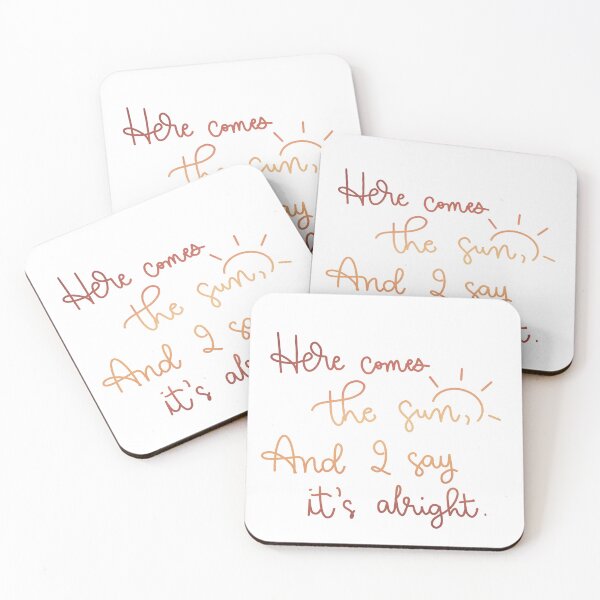 Here comes
the sun,
say
Here comes
the sun,
And I say
Here comes
the sun,
And I s
it's al
Here comes
the sun,
And I say
it's alright.